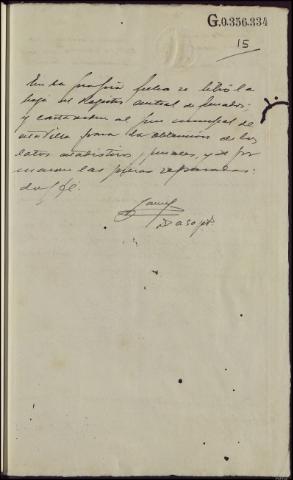 G.0.356.334
15
En la propia fecha se libró la
hoja al Registro central de Penados;
y carta orden al Juez municipal de
para la obtención de los
datos estadísticos, penales, y se for
maron las piezas separadas:
doy fé.